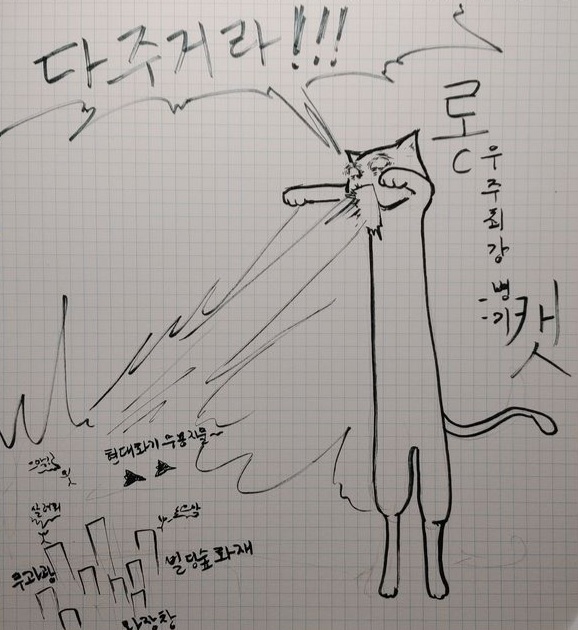 다 주거라!!!
롱
캣
우주최강
-병기-
현대화기 무용지물~
살려줘
으악
우과광
빌딩숲 화재
와장창